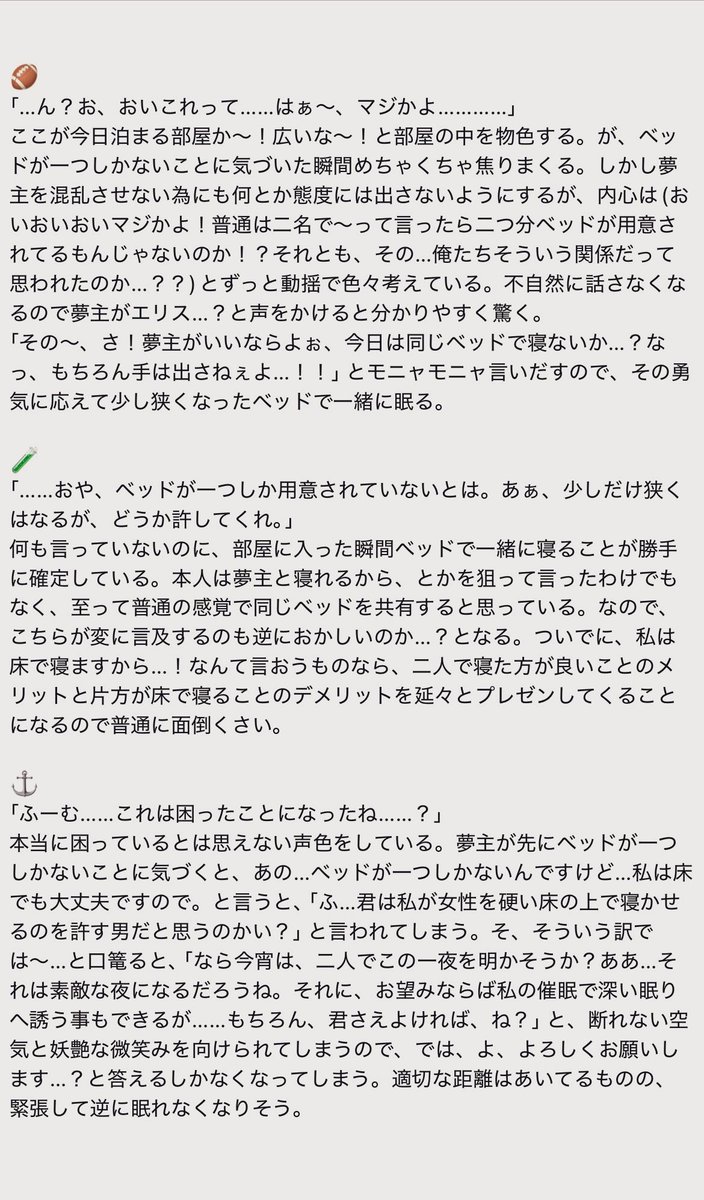 🏈
｢…ん？お、おいこれって……はぁ〜、マジかよ…………｣
ここが今日泊まる部屋か〜！広いな〜！と部屋の中を物色する。が、ベッ
ドが一つしかないことに気づいた瞬間めちゃくちゃ焦りまくる。しかし夢
主を混乱させない為にも何とか態度には出さないようにするが、内心は (お
いおいおいマジかよ！普通は二名で〜って言ったら二つ分ベッドが用意さ
れてるもんじゃないのか！？それとも、その…俺たちそういう関係だって
思われたのか…？？) とずっと動揺で色々考えている。不自然に話さなくな
るので夢主がエリス…？と声をかけると分かりやすく驚く。
｢その〜、さ！夢主がいいならよぉ、今日は同じベッドで寝ないか…？な
っ、もちろん手は出さねぇよ…！！｣ とモニャモニャ言いだすので、その勇
気に応えて少し狭くなったベッドで一緒に眠る。
🧪
｢……おや、ベッドが一つしか用意されていないとは。あぁ、少しだけ狭く
はなるが、どうか許してくれ。｣
何も言っていないのに、部屋に入った瞬間ベッドで一緒に寝ることが勝手
に確定している。本人は夢主と寝れるから、とかを狙って言ったわけでも
なく、至って普通の感覚で同じベッドを共有すると思っている。なので、
こちらが変に言及するのも逆におかしいのか…？となる。ついでに、私は
床で寝ますから…！なんて言おうものなら、二人で寝た方が良いことのメ
リットと片方が床で寝ることのデメリットを延々とプレゼンしてくること
になるので普通に面倒くさい。
⚓
｢ふーむ……これは困ったことになったね……？｣
本当に困っているとは思えない声色をしている。夢主が先にベッドが一つ
しかないことに気づくと、あの…ベッドが一つしかないんですけど…私は床
でも大丈夫ですので。と言うと、｢ふ…君は私が女性を硬い床の上で寝かせ
るのを許す男だと思うのかい？｣ と言われてしまう。そ、そういう訳で
は〜…と口篭ると、｢なら今宵は、二人でこの一夜を明かそうか？ああ…そ
れは素敵な夜になるだろうね。それに、お望みならば私の催眠で深い眠り
へ誘う事もできるが……もちろん、君さえよければ、ね？｣ と、断れない空
気と妖艶な微笑みを向けられてしまうので、では、よ、よろしくお願いし
ます…？と答えるしかなくなってしまう。適切な距離はあいてるものの、
緊張して逆に眠れなくなりそう。